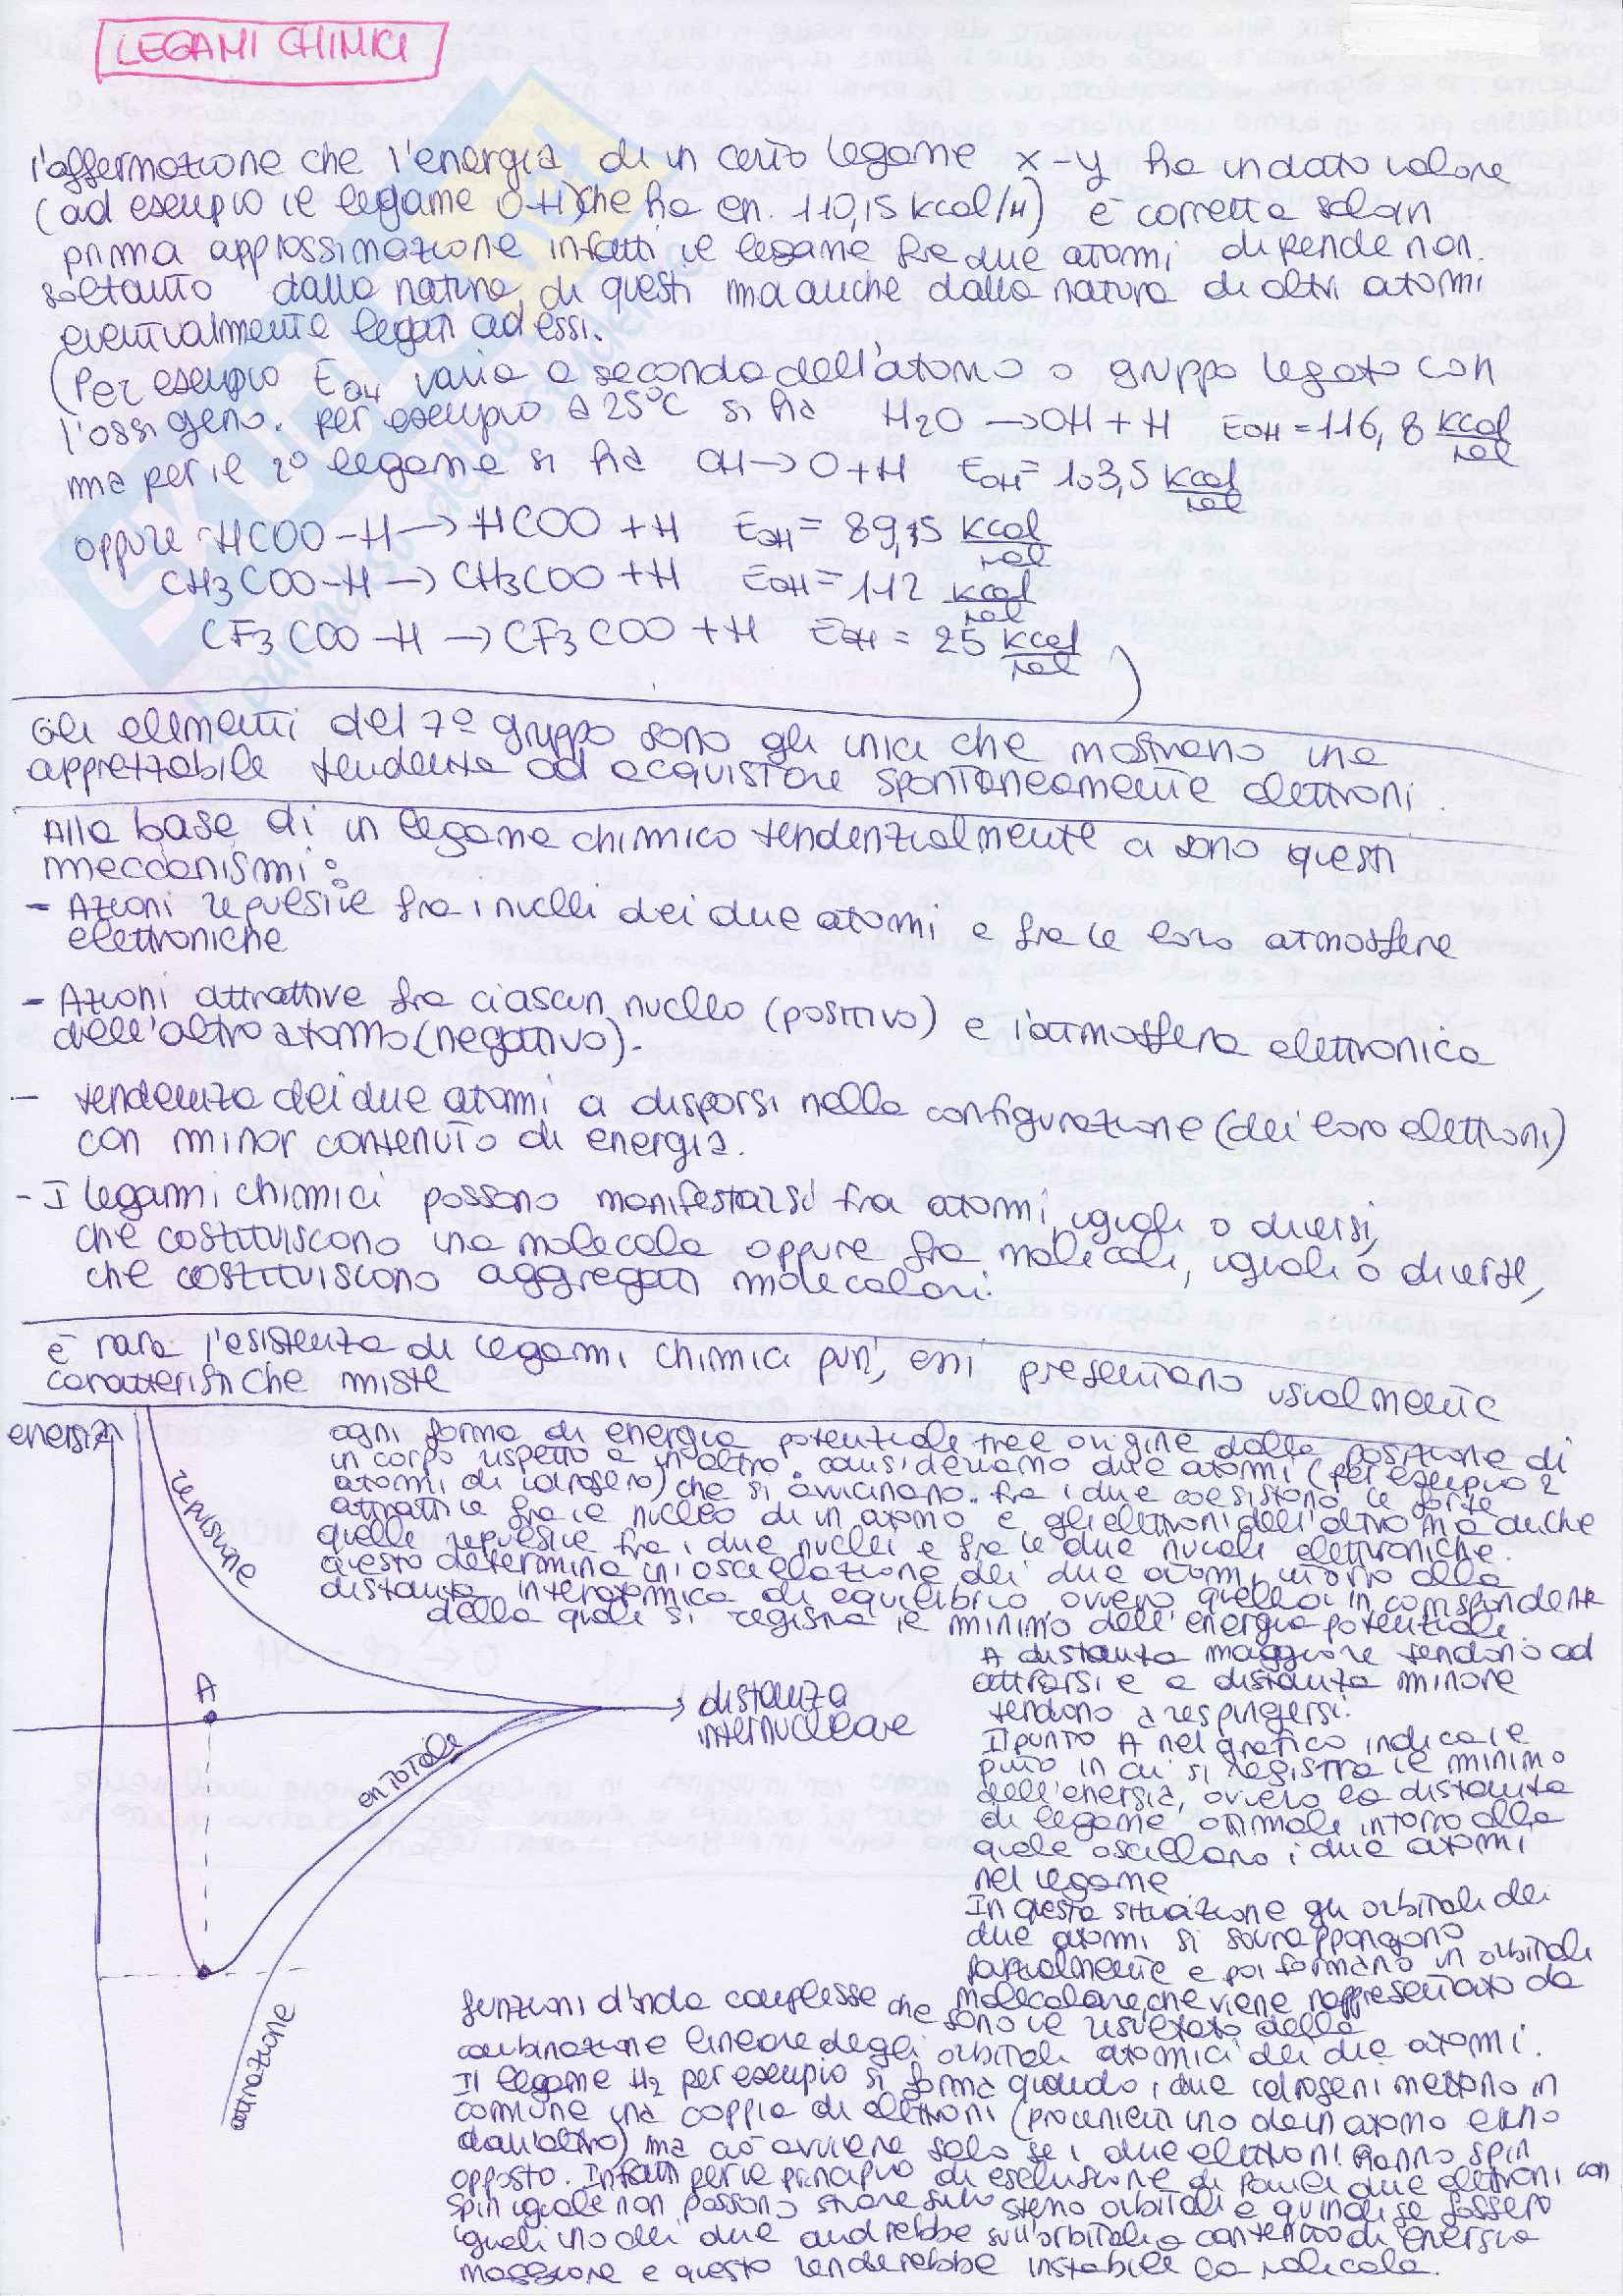 LEGAMI CHIMICI
l'affermazione che l'energia di un certo legame x-y ha un dato valore
(ad esempio il legame O-H) che ha en. 110,15 kcal/M) è corretta solo in
prima approssimazione infatti il legame fra due atomi dipende non
soltanto dalla natura di questi ma anche dalla natura di altri atomi
eventualmente legati ad essi.
(Per esempio EOH varia a seconda dell'atomo o gruppo legato con
l'ossigeno. per esempio a 25°C si ha H2O → OH + H EOH = 116,8 kcal/mol
ma per il 2° legame si ha OH → O + H EOH = 103,5 kcal/mol
oppure HCOO-H → HCOO + H EOH = 89,15 kcal/mol
CH3COO-H → CH3COO + H EOH = 112 kcal/mol
CF3COO-H → CF3COO + H EOH = 25 kcal/mol )
Gli elementi del 7° gruppo sono gli unici che mostrano una
apprezzabile tendenza ad acquistare spontaneamente elettroni.
Alla base di un legame chimico tendenzialmente ci sono questi
meccanismi:
- Azioni repulsive fra i nuclei dei due atomi e fra le loro atmosfere
elettroniche
- Azioni attrattive fra ciascun nucleo (positivo) e l'atmosfera elettronica
dell'altro atomo (negativo).
- tendenza dei due atomi a disporsi nella configurazione (dei loro elettroni)
con minor contenuto di energia.
- I legami chimici possono manifestarsi fra atomi, uguali o diversi,
che costituiscono una molecola oppure fra molecole, uguali o diverse,
che costituiscono aggregati molecolari.
è rara l'esistenza di legami chimici puri, essi presentano usualmente
caratteristiche miste
energia
repulsione
A
distanza
internucleare
en totale
attrazione
ogni forma di energia potenziale trae origine dalla posizione di
un corpo rispetto a un altro. consideriamo due atomi (per esempio 2
atomi di idrogeno) che si avvicinano. fra i due coesistono le forze
attrattive fra il nucleo di un atomo e gli elettroni dell'altro ma anche
quelle repulsive fra i due nuclei e fra le due nuvole elettroniche.
questo determina un'oscillazione dei due atomi intorno alla
distanza interatomica di equilibrio ovvero quella in corrispondenza
della quale si registra il minimo dell'energia potenziale.
A distanza maggiore tendono ad
attrarsi e a distanza minore
tendono a respingersi.
Il punto A nel grafico indica il
punto in cui si registra il minimo
dell'energia, ovvero la distanza
di legame ottimale intorno alla
quale oscillano i due atomi
nel legame
In questa situazione gli orbitali dei
due atomi si sovrappongono
parzialmente e poi formano un orbitale
molecolare, che viene rappresentato da
funzioni d'onda complesse che sono il risultato della
combinazione lineare degli orbitali atomici dei due atomi.
Il legame H2 per esempio si forma quando i due idrogeni mettono in
comune una coppia di elettroni (provenienti uno da un atomo e uno
dall'altro) ma ciò avviene solo se i due elettroni hanno spin
opposto. Infatti per il principio di esclusione di Pauli due elettroni con
spin uguale non possono stare sullo stesso orbitale e quindi se fossero
uguali uno dei due andrebbe sull'orbitale a contenuto di energia
maggiore e questo renderebbe instabile la molecola.